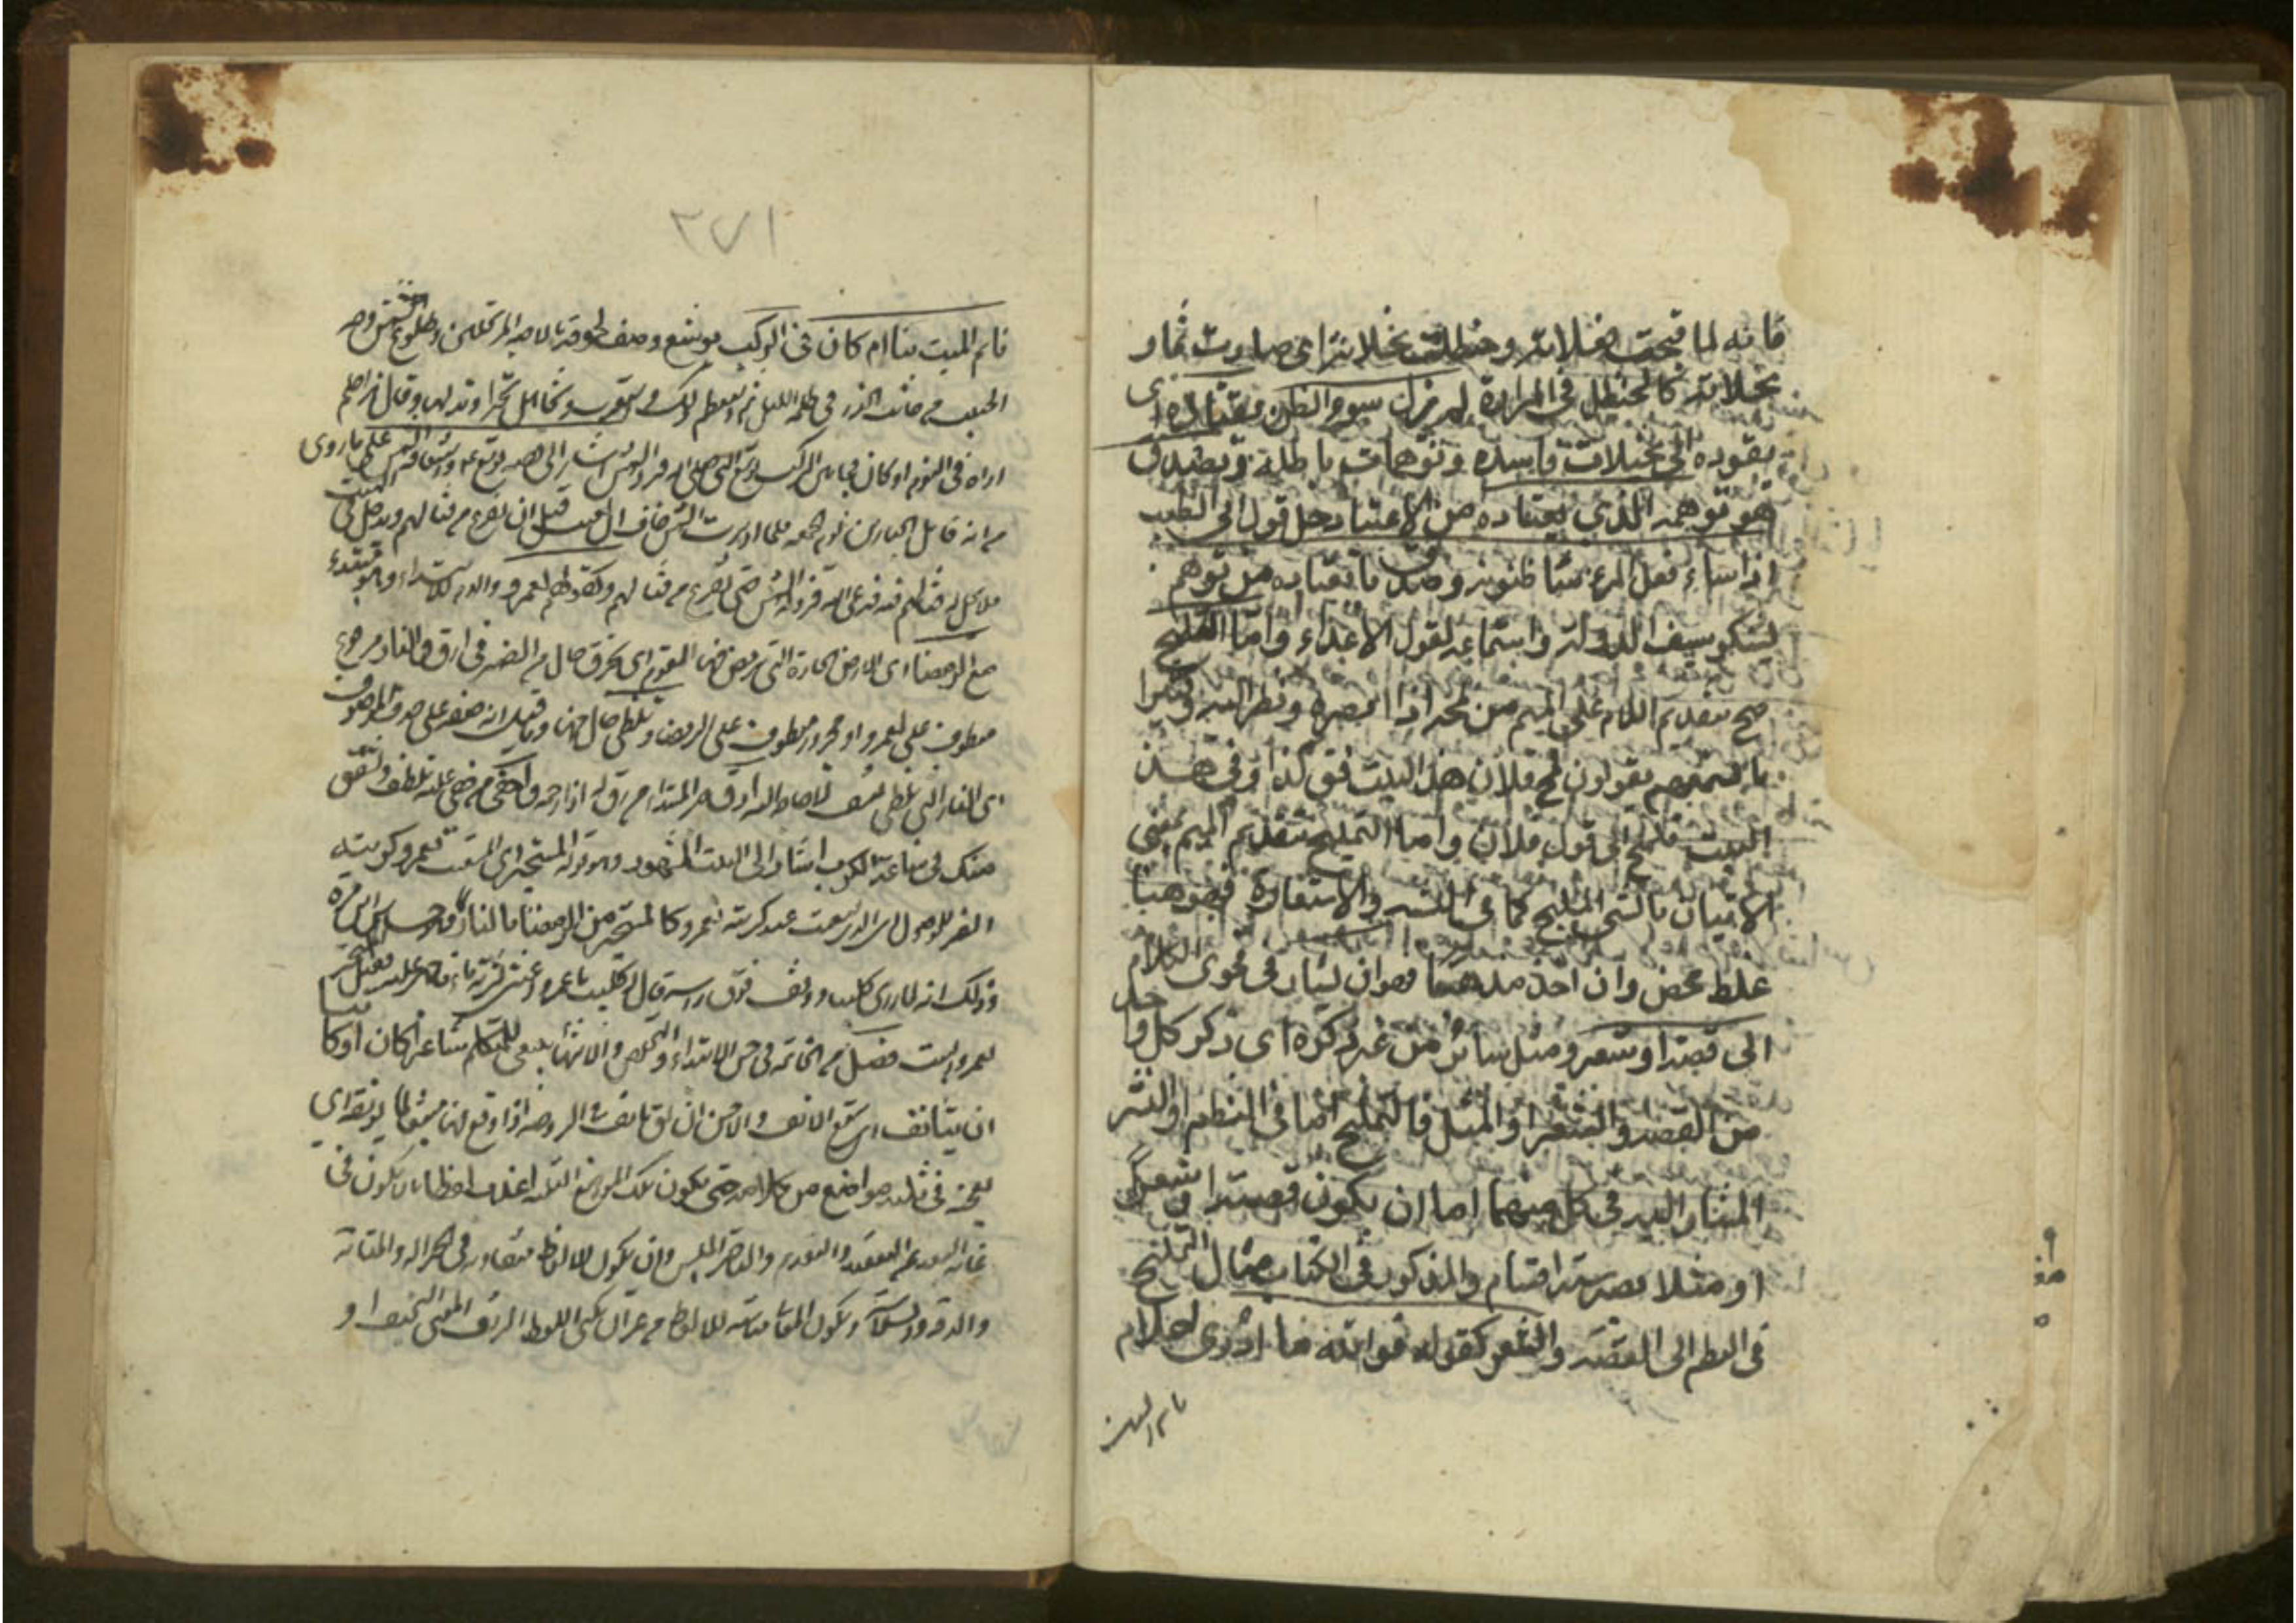 فانه لما قبحت فعلاته وحنظلت نخلاته اى صارت ثمار
نخلاته كالحنظل في المرارة لم يزل سوء الظن يقتاده اى
يقوده الى تخيلات فاسدة وتوهمات باطلة ويصدق
هو توهمه الذي يعتاده من الاعتياد حل قول ابى الطيب
اذا ساء فعل المرء ساء ظنونه وصدق ما يعتاده من توهم
يشكو سيف الدولة واستماعه لقول الاعداء واما التلميح
صح بتقديم اللام على الميم من لمحه اذا ابصره ونظر اليه وكثيرا
ما تسمعهم يقولون لمح فلان هذا البيت فقال كذا وفي هذا
البيت تلميح الى قول فلان واما التمليح بتقديم الميم بمعنى
الاتيان بالشئ المليح كما في التشبيه والاستعارة فهو ههنا
غلط محض وان اخذ مذهبا فهو ان يشار في فحوى الكلام
الى قصة او شعر ومثل سائر من غير ذكره اى ذكر كل واحد
من القصة والشعر او المثل فالتلميح اما في النظم او النثر
المشار اليه في كل منهما اما ان يكون قصة او شعرا
او مثلا يصير ستة اقسام والمذكور في الكتاب مثال التلميح
في النظم الى القصة والشعر كقوله فوالله ما ادرى احلام
نائم المت
٣٧١
نائم المت بنا ام كان في الركب يوشع وصف لحوقه بالاحبة المرتحلين وطلوع شمس وجه
الحبيب من جانب الخدر في ظلمة الليل ثم استعظم ذلك واستغرب وتجاهل تحيرا وتدلها وقال اهذا حلم
اراه في النوم او كان فيما بين الركب يوشع النبي صلى الله فرد الشمس اشار الى قصة يوشع عم واستيقافه الشمس على ما روى
من انه قاتل الجبارين يوم الجمعة فلما ادبرت الشمس خاف ان تغيب قبل ان يفرغ من قتالهم ويدخل السبت
فلا يحل له قتالهم فيه فدعى الله فرد له الشمس حتى فرغ من قتالهم وكقوله لعمرو واللام للابتداء وهو مبتدء
مع الرمضاء اى الارض الحارة التي يرمض فيها القدم اى يحترق حال من الضمير في ارق والنار مرفوع
معطوف على لعمرو او مجرور معطوف على الرمضاء وتلظى حال منها وما قيل انه صفة على حذف الموصول
اى النار التي تلظى تعسف لا حاجة اليه ارق خبر المبتدأ من رق له اذا رحمه واحفى من حفى عليه تلطف وتشفق
منك في ساعة الكرب اشار الى البيت المشهور وهو قوله المستجير اى المستغيث بعمرو عند كربته
الضمير للموصول اى الذي يستغيث عند كربته بعمرو كالمستجير من الرمضاء بالنار
وذلك انه لما رمى كليبا ووقف فوق رأسه قال له كليب يا عمرو اغثني بشربة ماء فاجهز عليه فقيل المستجير
بعمرو البيت فصل من الخاتمة في حسن الابتداء والتخلص والانتهاء ينبغي للمتكلم شاعرا كان او كاتبا
ان يتأنق اى يتبع الانق والاحسن يقال تأنق في الروضة اذا وقع فيها متتبعا لما يونقه اى
يعجبه في ثلثة مواضع من كلامه حتى يكون تلك المواضع الثلثة اعذب لفظا بان يكون في
غاية البعد عن التعقيد والتقديم والتأخير الملبس وان يكون الالفاظ متقاربة في الجزالة والمتانة
والرقة والسلاسة ويكون المعاني مناسبة للالفاظ من غير ان يكسى اللفظ الشريف المعنى السخيف او